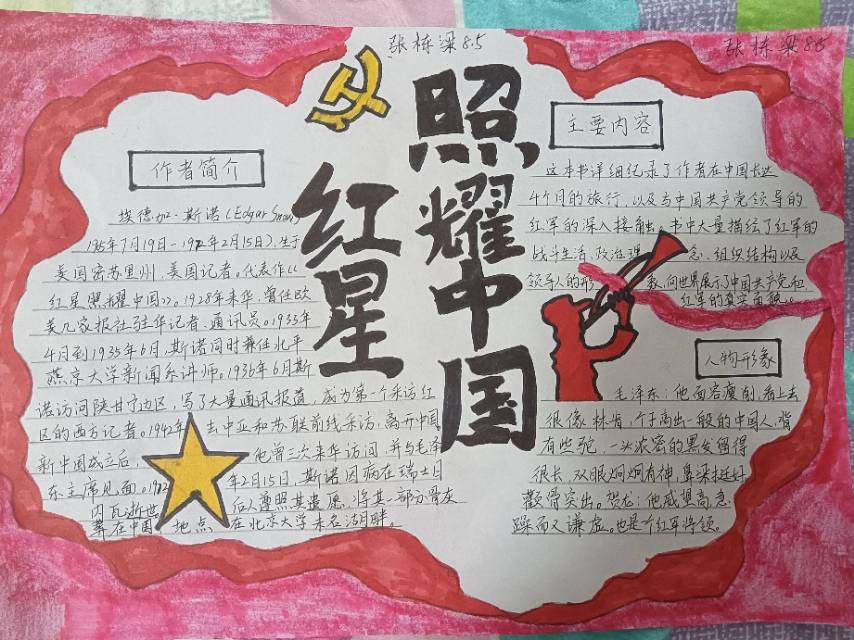 张栋梁8.5
张栋梁8.5
红星
照耀中国
作者简介
埃德加·斯诺(Edgar Snow
1905年7月19日—1972年2月15日),生于
美国密苏里州,美国记者。代表作《
红星照耀中国》。1928年来华,曾任欧
美几家报社驻华记者、通讯员。1933年
4月到1935年6月,斯诺同时兼任北平
燕京大学新闻系讲师。1936年6月斯
诺访问陕甘宁边区,写了大量通讯报道,成为第一个采访红
区的西方记者。1942年 去中亚和苏联前线采访,离开中国。
新中国成立后, 他曾三次来华访问,并与毛泽
东主席见面。1972 年2月15日,斯诺因病在瑞士日
内瓦逝世。 后人遵照其遗愿,将其一部分骨灰
葬在中国,地点 在北京大学未名湖畔。
主要内容
这本书详细纪录了作者在中国长达
4个月的旅行,以及与中国共产党领导的
红军的深入接触。书中大量描绘了红军的
战斗生活、政治理 念、组织结构以及
领导人的形 象,向世界展示了中国共产党和
红军的真实面貌。
人物形象
毛泽东:他面容瘦削,看上去
很像林肯,个子高出一般的中国人,背
有些驼,一头浓密的黑发留得
很长,双眼炯炯有神,鼻梁挺好
颧骨突出。贺龙:他威望高,急
躁而又谦虚。也是个红军将领。